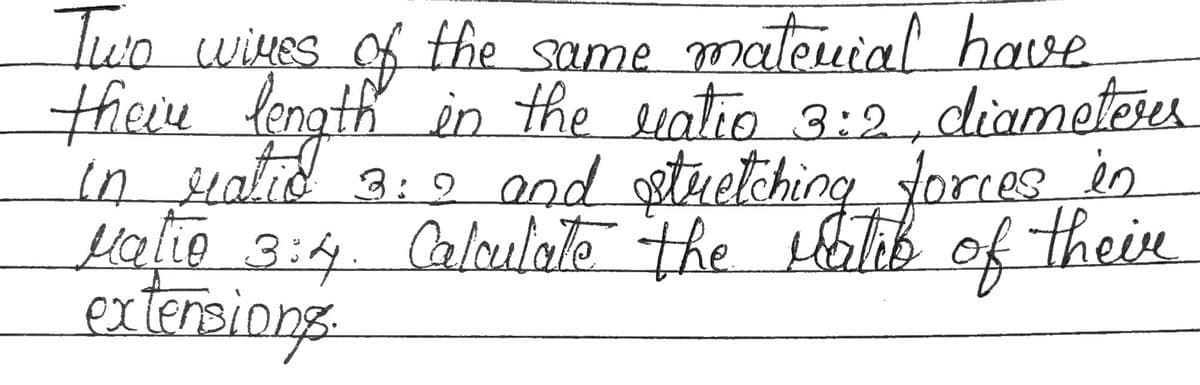 Two wires of the same material have
their length in the ratio 3:2, diameters
in ratio 3:2 and stretching forces in
ratio 3:4. Calculate the ratio of their
extensions.